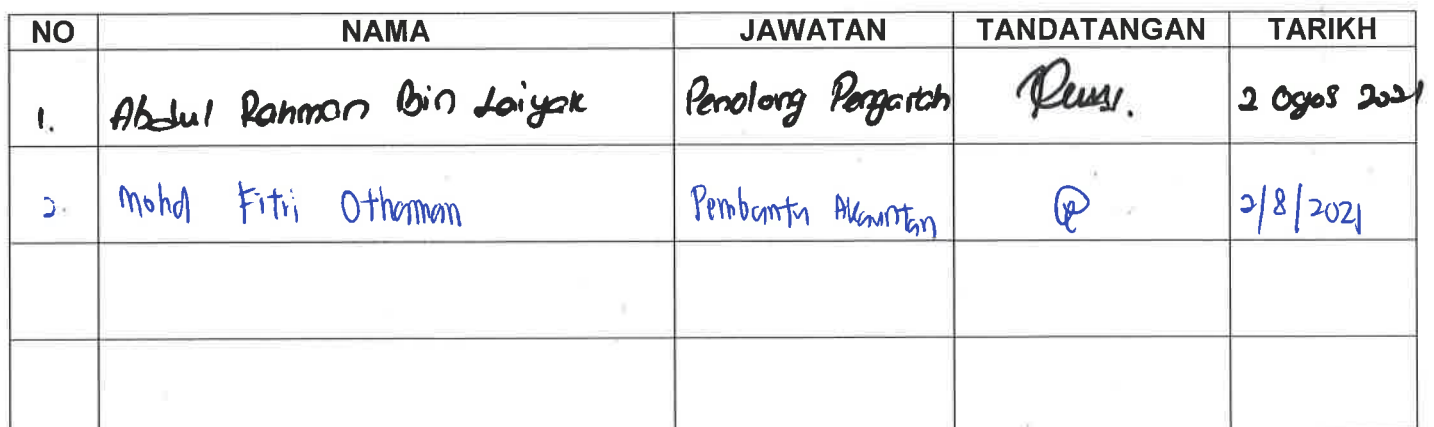 NO NAMA JAWATAN TANDATANGAN TARIKH
1. Abdul Rahman Bin Laiyak Penolong Pengarah 2 Ogos 2021
2. Mohd Fitri Othaman Pembantu Akauntan 2/8/2021